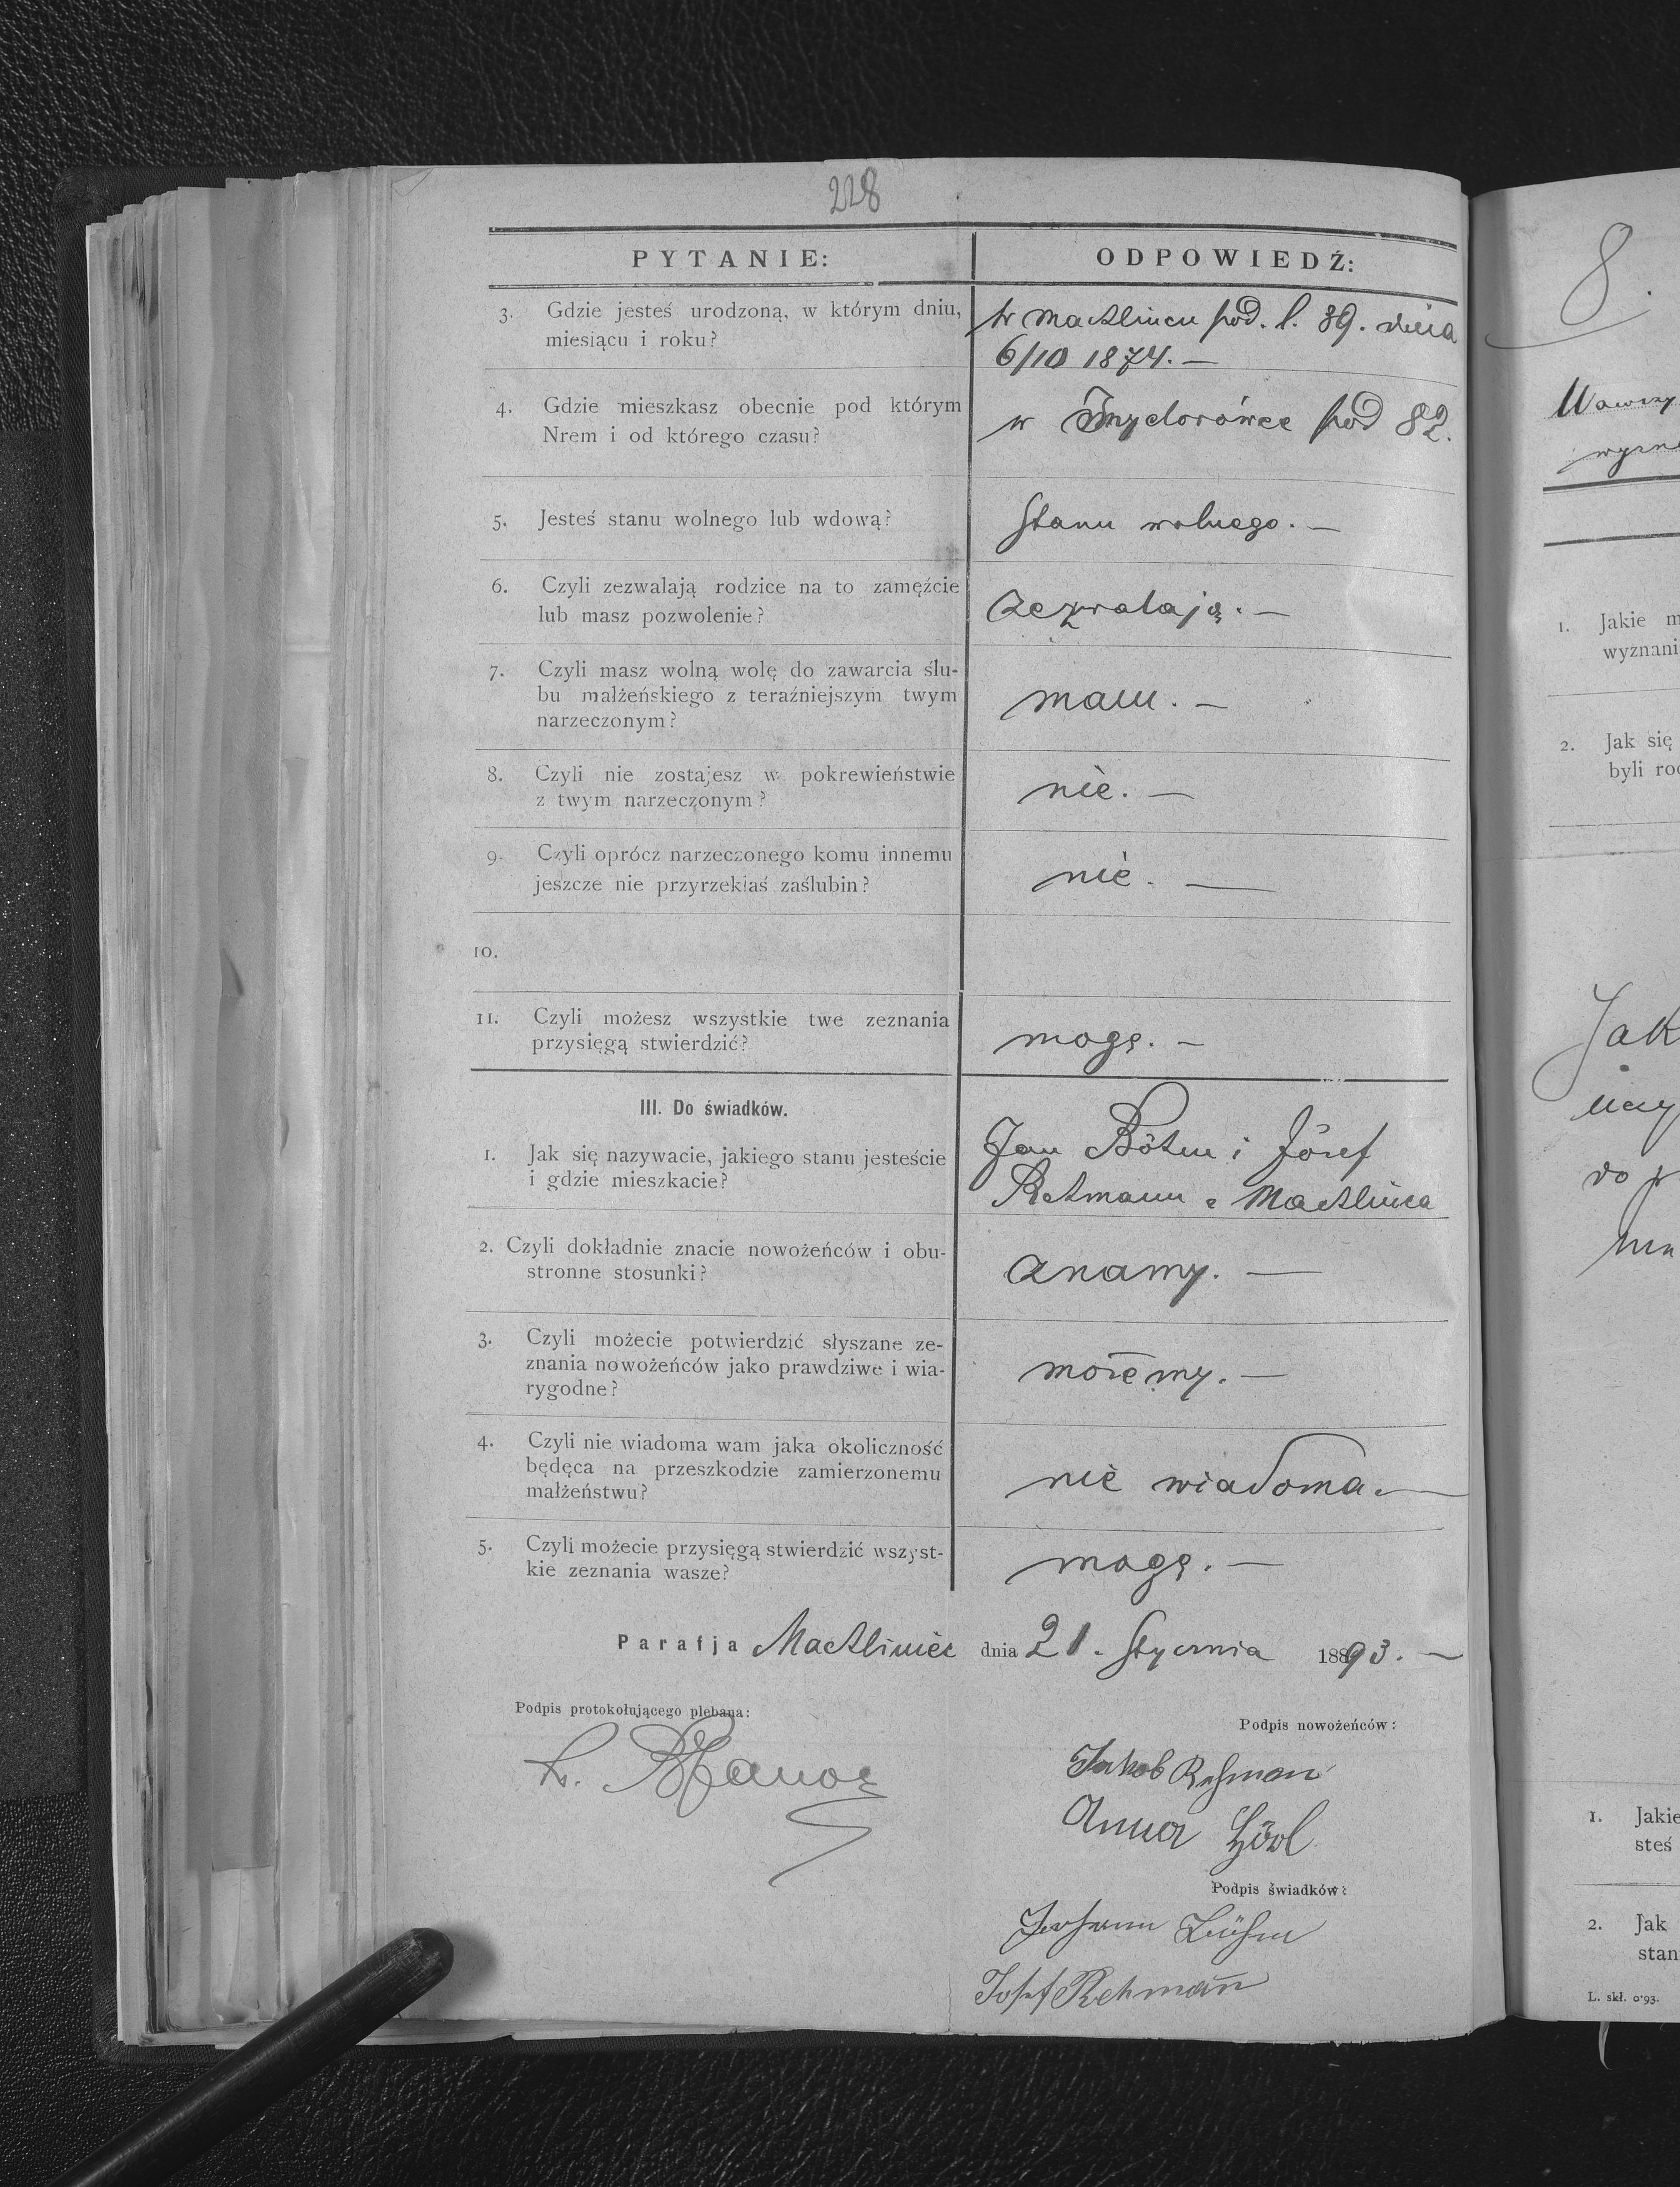 228
PYTANIE:
ODPOWIEDŹ:
3. Gdzie jesteś urodzoną, w którym dniu,
miesiącu i roku?
w Machlincu pod. l. 39. dnia
6/10 1874. —
4. Gdzie mieszkasz obecnie pod którym
Nrem i od którego czasu?
w pod 82.
5. Jesteś stanu wolnego lub wdową?
Stanu wolnego. —
6. Czyli zezwalają rodzice na to zamęźcie
lub masz pozwolenie?
Zezwalają. —
7. Czyli masz wolną wolę do zawarcia ślu-
bu małżeńskiego z teraźniejszym twym
narzeczonym?
mam. —
8. Czyli nie zostajesz w pokrewieństwie
z twym narzeczonym?
nie. —
9. Czyli oprócz narzeczonego komu innemu
jeszcze nie przyrzekłaś zaślubin?
nie. —
10.
11. Czyli możesz wszystkie twe zeznania
przysięgą stwierdzić?
mogę. —
III. Do świadków.
1. Jak się nazywacie, jakiego stanu jesteście
i gdzie mieszkacie?
Jan Böhm i Józef
Rehmann z Machlińca
2. Czyli dokładnie znacie nowożeńców i obu-
stronne stosunki?
Znamy. —
3. Czyli możecie potwierdzić słyszane ze-
znania nowożeńców jako prawdziwe i wia-
rygodne?
możemy. —
4. Czyli nie wiadoma wam jaka okoliczność
będęca na przeszkodzie zamierzonemu
małżeństwu?
nie wiadoma. —
5. Czyli możecie przysięgą stwierdzić wszyst-
kie zeznania wasze?
mogę. —
Parafja Machliniec dnia 21. Stycznia 1893. —
Podpis protokołującego plebana:
Podpis nowożeńców:
Jakob Rehman
Anna
Podpis świadków:
Johann Böhm
Josef Rehmann
8.
Wawrzy
wyzna
1. Jakie m
wyznani
2. Jak się
byli rod
Jak
do
1. Jakie
steś
2. Jak
stan
L. skł. 0·93.